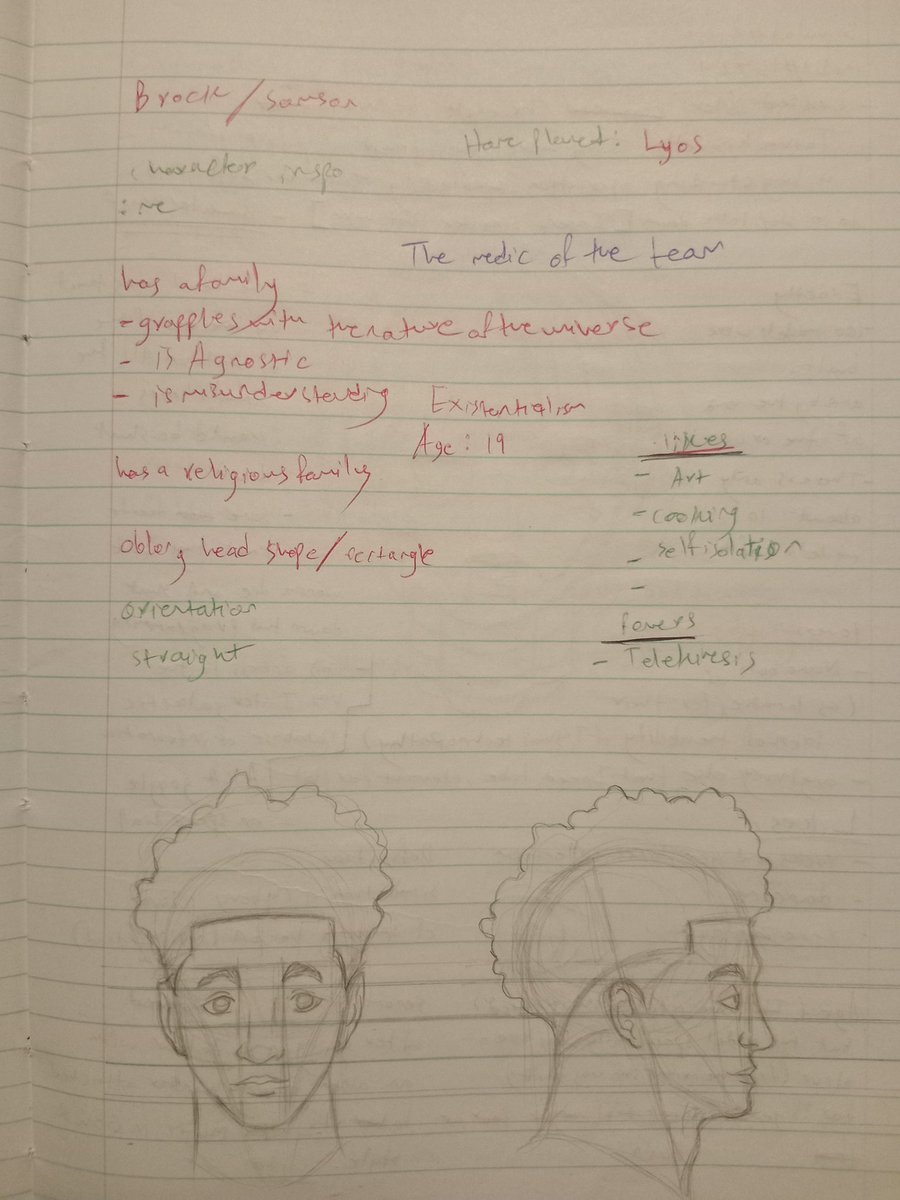 Brock/Samson
Home planet: Lyos
character inspo
: me
The medic of the team
has a family
- grapples with the nature of the universe
- is Agnostic
- is misunderstanding Existentialism
Age: 19
likes
has a religious family
- Art
- cooking
oblong head shape/rectangle
- self isolation
-
orientation
powers
straight
- Telekinesis